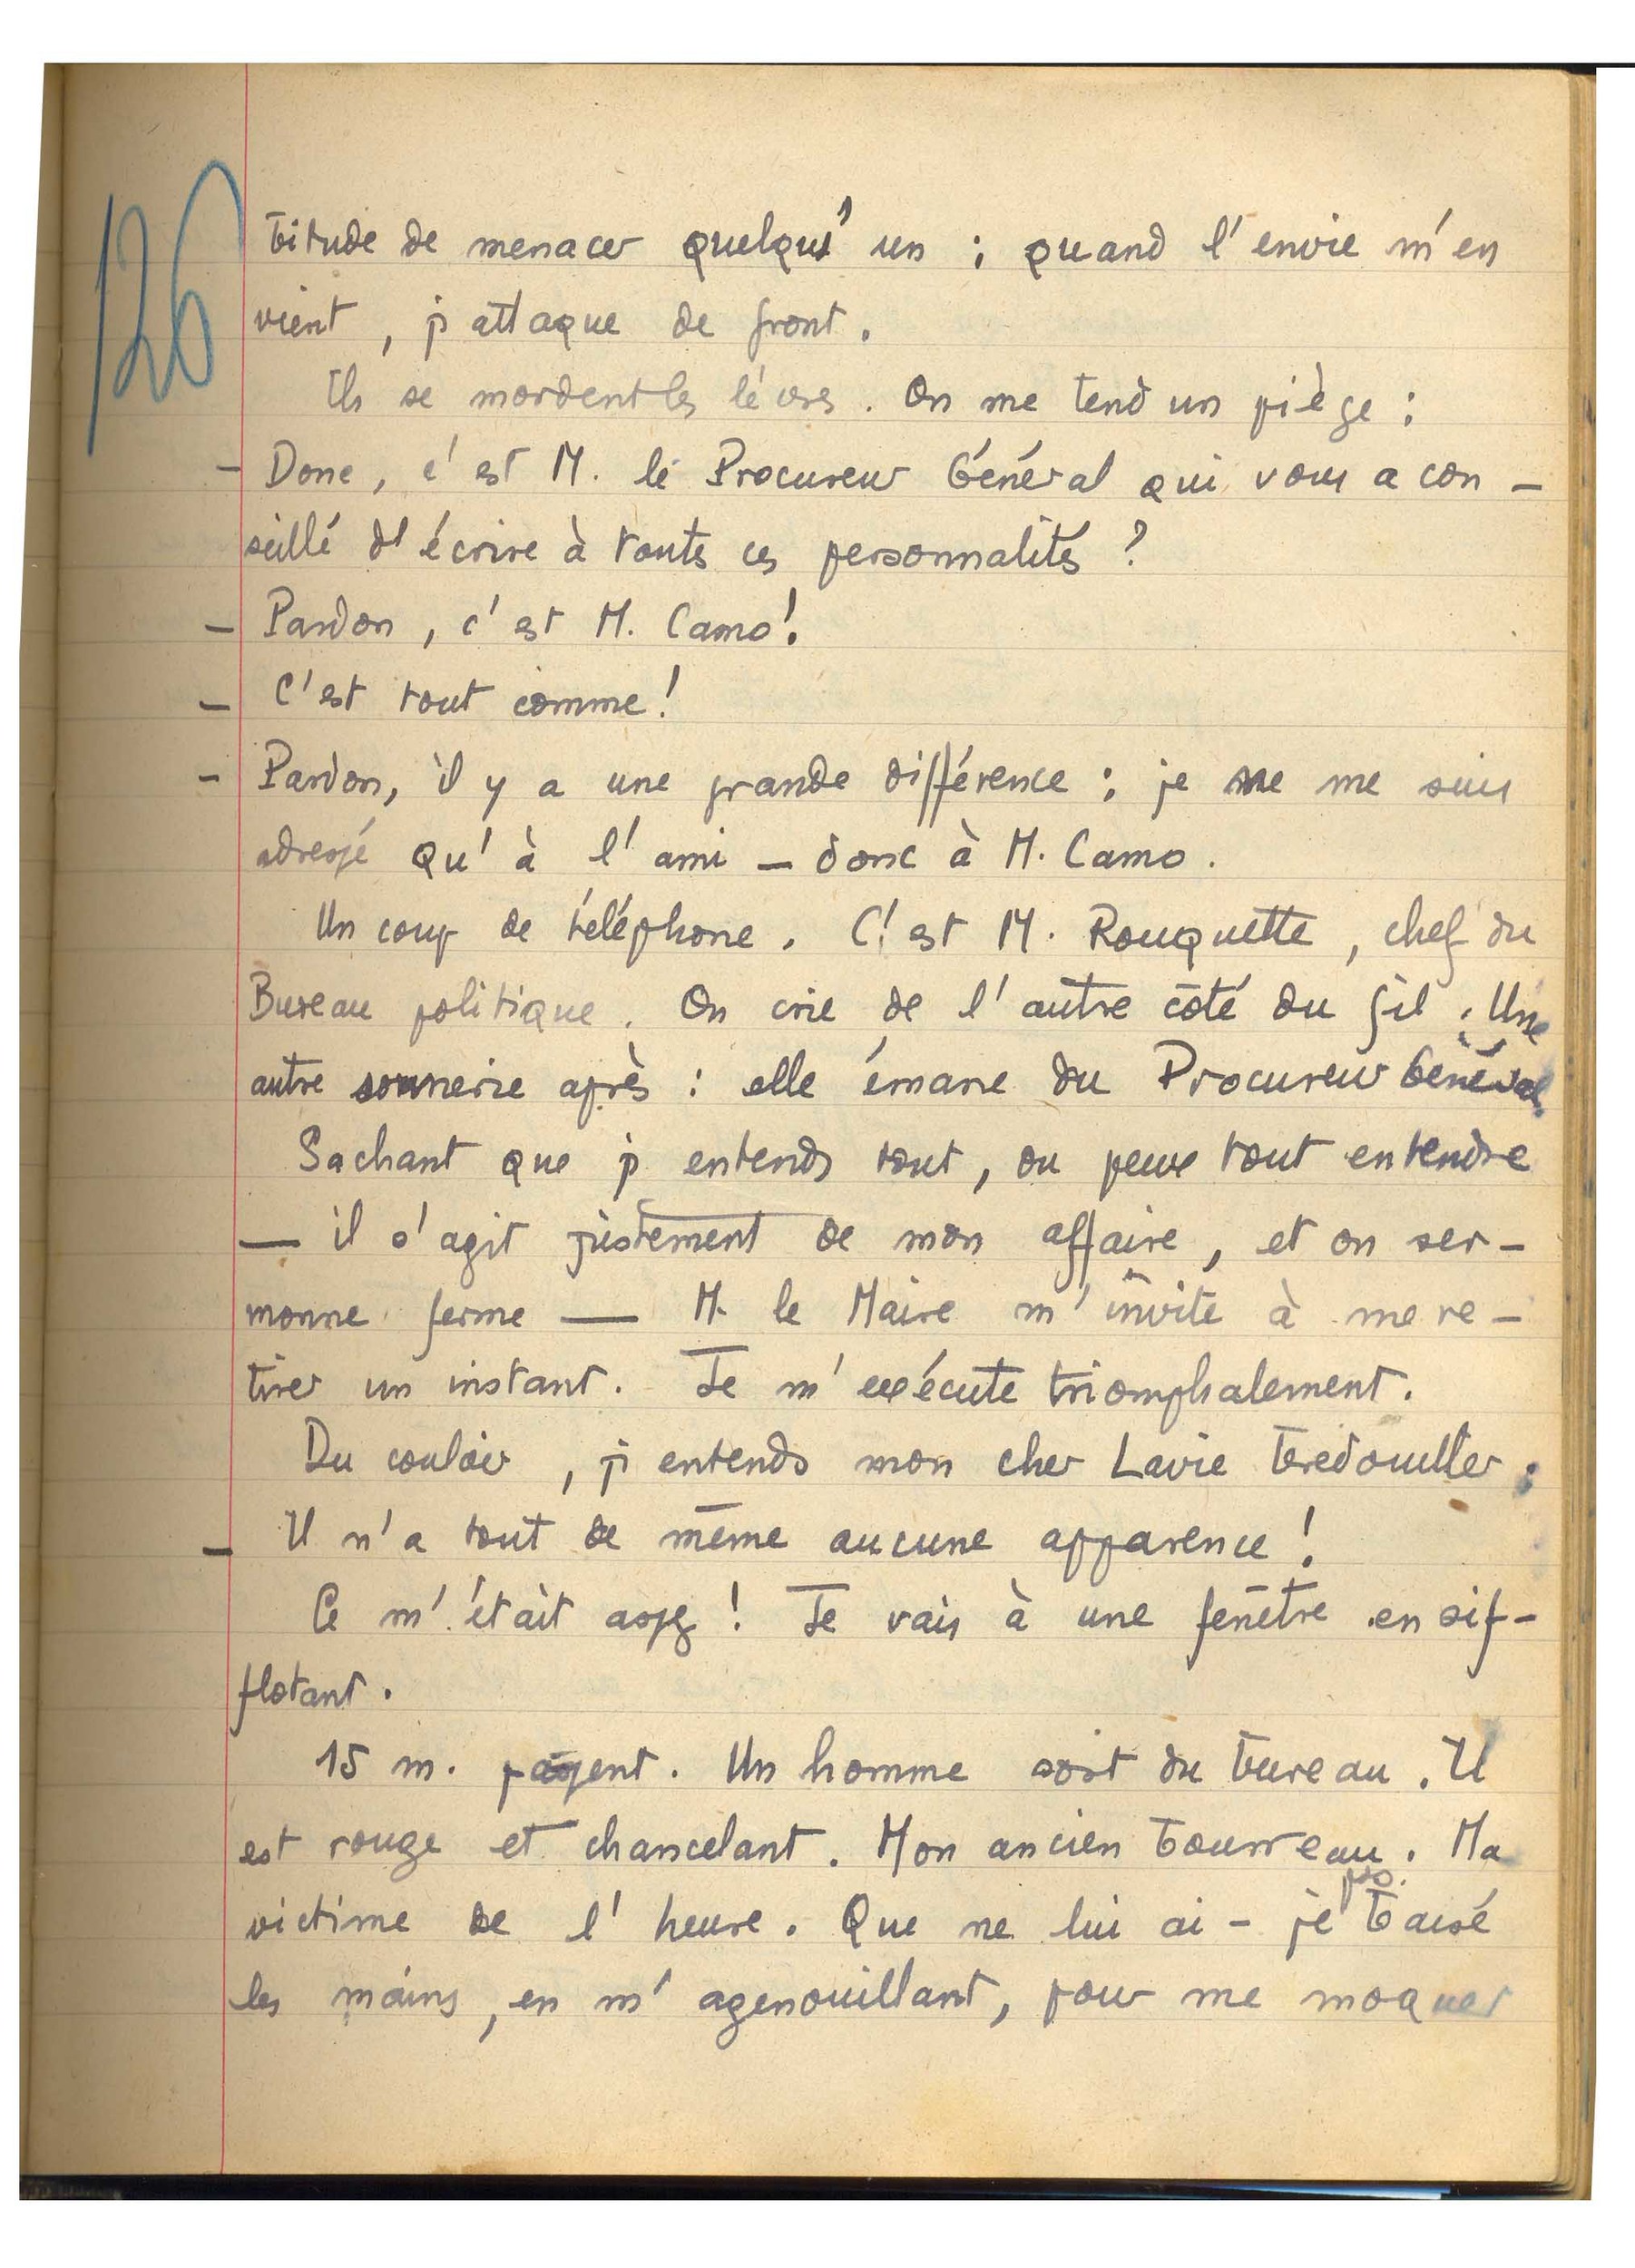 126
bitude de menacer quelqu'un ; quand l'envie m'en
vient, j'attaque de front.
Ils se mordent les lèvres. On me tend un piège :
- Donc, c'est M. le Procureur Général qui vous a con-
seillé d'écrire à toutes ces personnalités ?
- Pardon, c'est M. Camo !
- C'est tout comme !
- Pardon, il y a une grande différence : je ne me suis
adressé qu'à l'ami - donc à M. Camo.
Un coup de téléphone. C'est M. Rouquette, chef du
Bureau politique. On crie de l'autre côté du fil. Une
autre sonnerie après : elle émane du Procureur Général.
Sachant que j'entends tout, ou peux tout entendre
— il s'agit justement de mon affaire, et on ser-
monne ferme — M. le Maire m'invite à me re-
tirer un instant. Je m'exécute triomphalement.
Du couloir, j'entends mon cher Lavie bredouiller :
- Il n'a tout de même aucune apparence !
Ce m'était assez ! Je vais à une fenêtre en sif-
flotant.
15 m. passent. Un homme sort du bureau. Il
est rouge et chancelant. Mon ancien bourreau. Ma
victime de l'heure. Que ne lui ai-je pas baisé
les mains, en m'agenouillant, pour me moquer